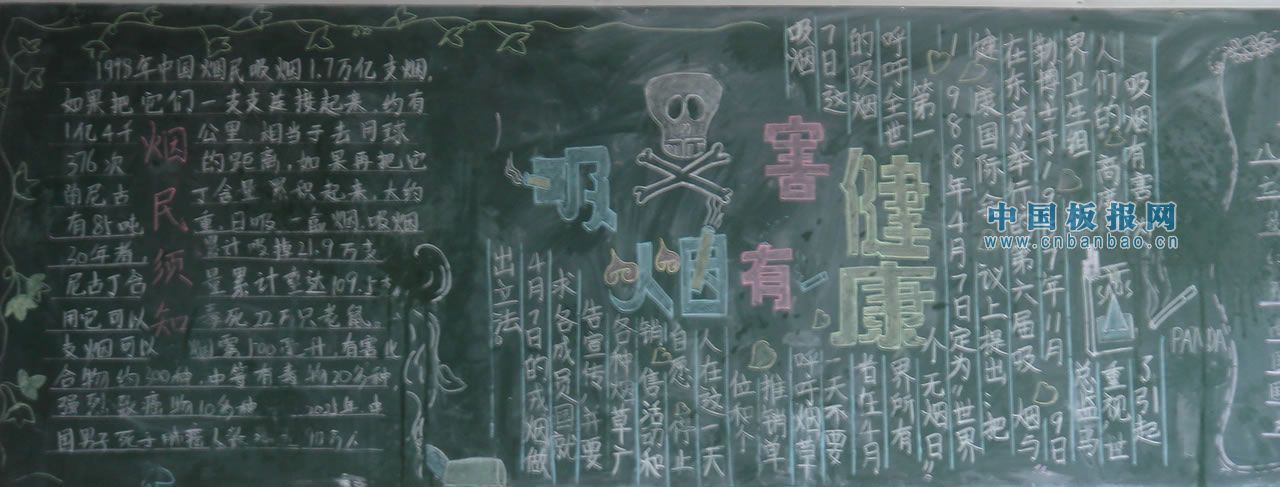 1998年中国烟民吸烟1.7万亿支烟,
如果把它们一支支连接起来,约有
1亿4千 公里,相当于去月球
376次 的距离,如果再把它
的尼古 丁含量累积起来,大约
有85吨 重,日吸一盒烟,吸烟
30年者, 累计吸掉21.9万支
尼古丁含 量累计重达109.5
用它可以 毒死22万只老鼠。
支烟可以 烟雾500毫升,有害化
合物约300种,中等有毒约20多种
强烈致癌物10多种 2025年中
国男子死于肺癌人
烟民须知
吸烟有害健康
吸烟有害
人们的高
界卫生组
勒博士于1979年11月
在东京举行第六届吸
健康国际 议上提出:把
1988年4月7日定为“世界
第一 个无烟日”
呼吁全世 界所有
的吸烟 者在4月
7日这 一天不要
吸烟 呼吁烟草
推销草
位和个
人在这一天
自愿停止
销售活动和
各种烟草广
告宣传,并要
求各成员国就
4月7日的戒烟做
出立法。
了引起
重视世
总监马
9日
烟与
PANDA
中国板报网
www.cnbanbao.cn